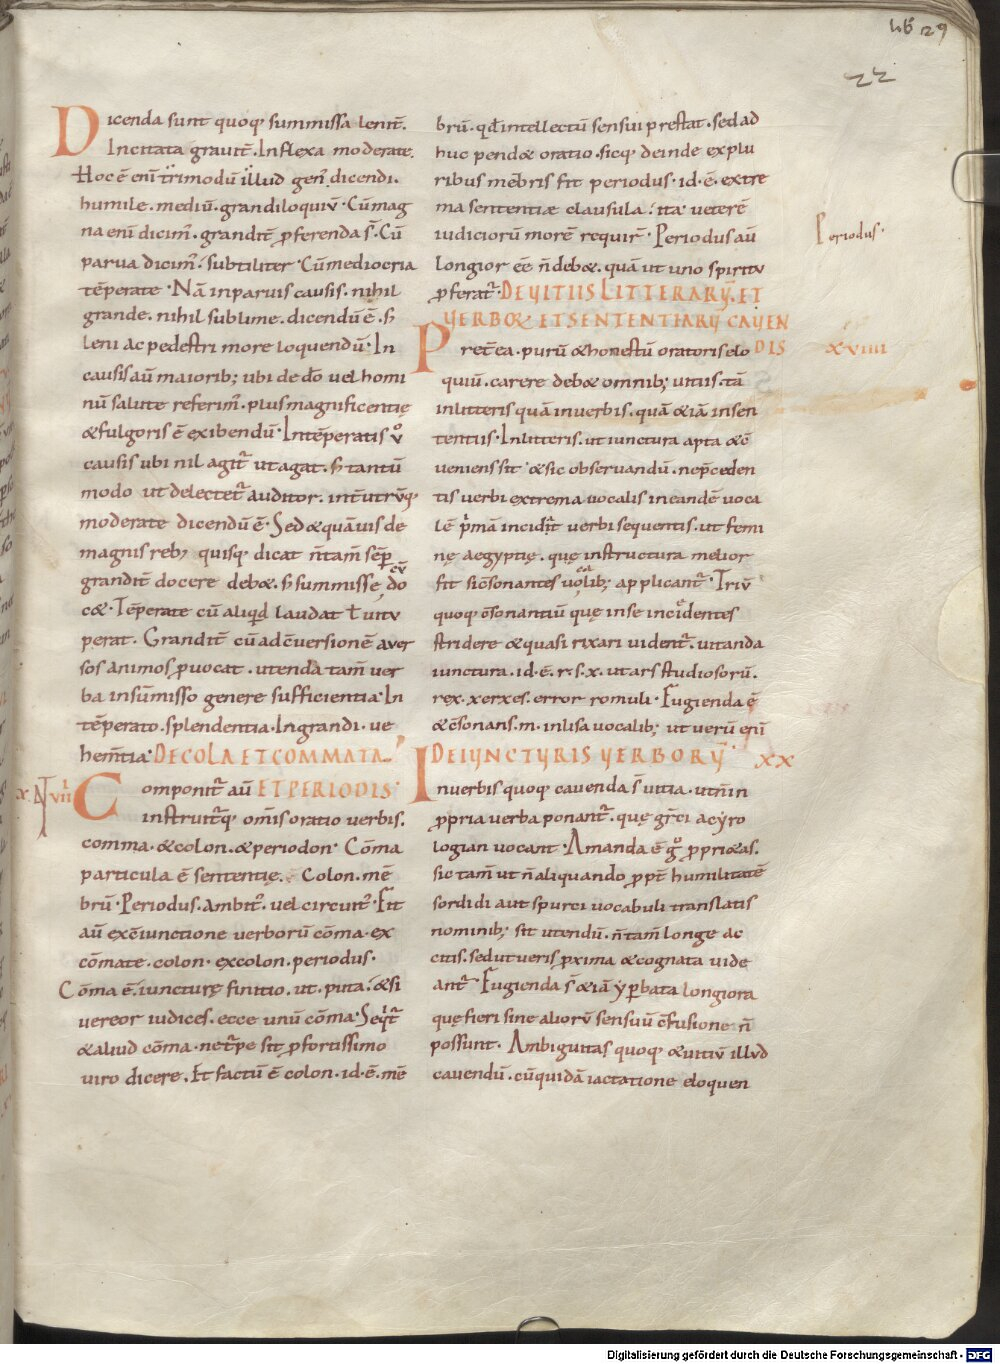 29
22
Dicenda sunt quoq; summissa lenit̄.
Incitata gravit̄. Inflexa moderate.
Hoc ē eni trimodū illud gen' dicendi.
humile. mediū. grandiloquiū. Cū mag
na enī dicim'. grandit̄ p̄ferenda s̄. Cū
parva dicim'. subtiliter. Cū mediocria
tēperate. Nā in parvis causis. nihil
grande. nihil sublime. dicendū ē. s;
leni ac pedestri more loquendū. In
causis aū maiorib; ubi de dō vel homi
nū salute referim'. plus magnificentię
& fulgoris ē exibendū. Intēperatis v̊
causis ubi nil agit̄ ut agat. s; tantū
modo ut delectet̄ auditor. int̄ utrūq;
moderate dicendū ē. Sed & quāvis de
magnis reb; quisq; dicat n̄ tam̄ sēp̄
grandit̄ docere deb&. s; summissę cū do
c&. Tēperate cū aliqd laudat ł vitu
perat. Grandit̄ cū ad c̄versionē aver
sos animos p̄vocat. utenda tam̄ ver
ba in sūmisso genere sufficientia. In
tēperato. splendentia. In grandi. ve
hem̄tia. DE COLA ET COMMATA
XVII
Componit̄ aū ET PERIODIS
instruit̄q; om̄is oratio verbis.
comma. & colon. & periodon. Cōma
particula ē sententię. Colon. mē
brū. Periodus. ambit'. vel circuit'. Fit
aū ex c̄iunctione verborū cōma. ex
cōmate. colon. ex colon. periodus.
Cōma ē. iuncturę finitio. ut. puta. & si
vereor iudices. ecce unū cōma. Seqit̄
& aliud cōma. ne t̄pe sit p̄ fortissimo
viro dicere. Et factū ē colon. id. ē. mē
brū. qd intellectū sensui prestat. sed ad
huc pend& oratio. sicq; deinde ex plu
ribus mēbris fit periodus. id. ē. extre
ma sententiæ clausula. ita veterē
iudiciorū morē requir'. Periodus aū
Periodus.
longior eē n̄ deb&. quā ut uno spiritu
p̄ferat̄. DE VITIIS LITTERARŪ. ET
VERBO& ET SENTENTIARŪ CAVEN
DIS
XVIIII
Pret̄ea. purū & honestū oratoris elo
quiū. carere deb& omnib; vitiis. tā
in litteris quā in verbis. quā &iā in sen
tentiis. In litteris. ut iunctura apta & c̄
veniens sit. & sic observandū. ne p̄ceden
tis verbi extrema vocalis in eandē voca
lē p̄mā incidit verbi sequentis. ut femi
nę aegyptię. quę instructura melior
fit si c̄sonantes vocalib; applicant̄. Triū
quoq; c̄sonantiū quę in se incidentes
stridere & quasi rixari vident̄. vitanda
iunctura. id. ē. r. s. x. ut ars studiosorū.
rex. xerxes. error romuli. Fugienda ē
& c̄sonans. m. inlisa vocalib; ut verū enī
DE IUNCTURIS VERBORŪ. XX
In verbis quoq; cavenda s̄ vitia. ut n̄ in
p̄pria verba ponant̄. quę gr̄ci acyro
logian vocant. Amanda ē g̊ p̄pri&as.
sic tam̄ ut n̄ aliquando p̄pt̄ humilitatē
sordidi aut spurci vocabuli translatis
nominib; sit utendū. n̄ tam̄ longe ac
citis. sed ut veris p̄xima & cognata vide
ant̄. Fugienda s̄ &iā yp̄bata longiora
quę fieri sine aliorū sensuū c̄fusione n̄
possunt. Ambiguitas quoq; & vitiū illud
cavendū. cū quidā iactatione eloquen
Digitalisierung gefördert durch die Deutsche Forschungsgemeinschaft - DFG